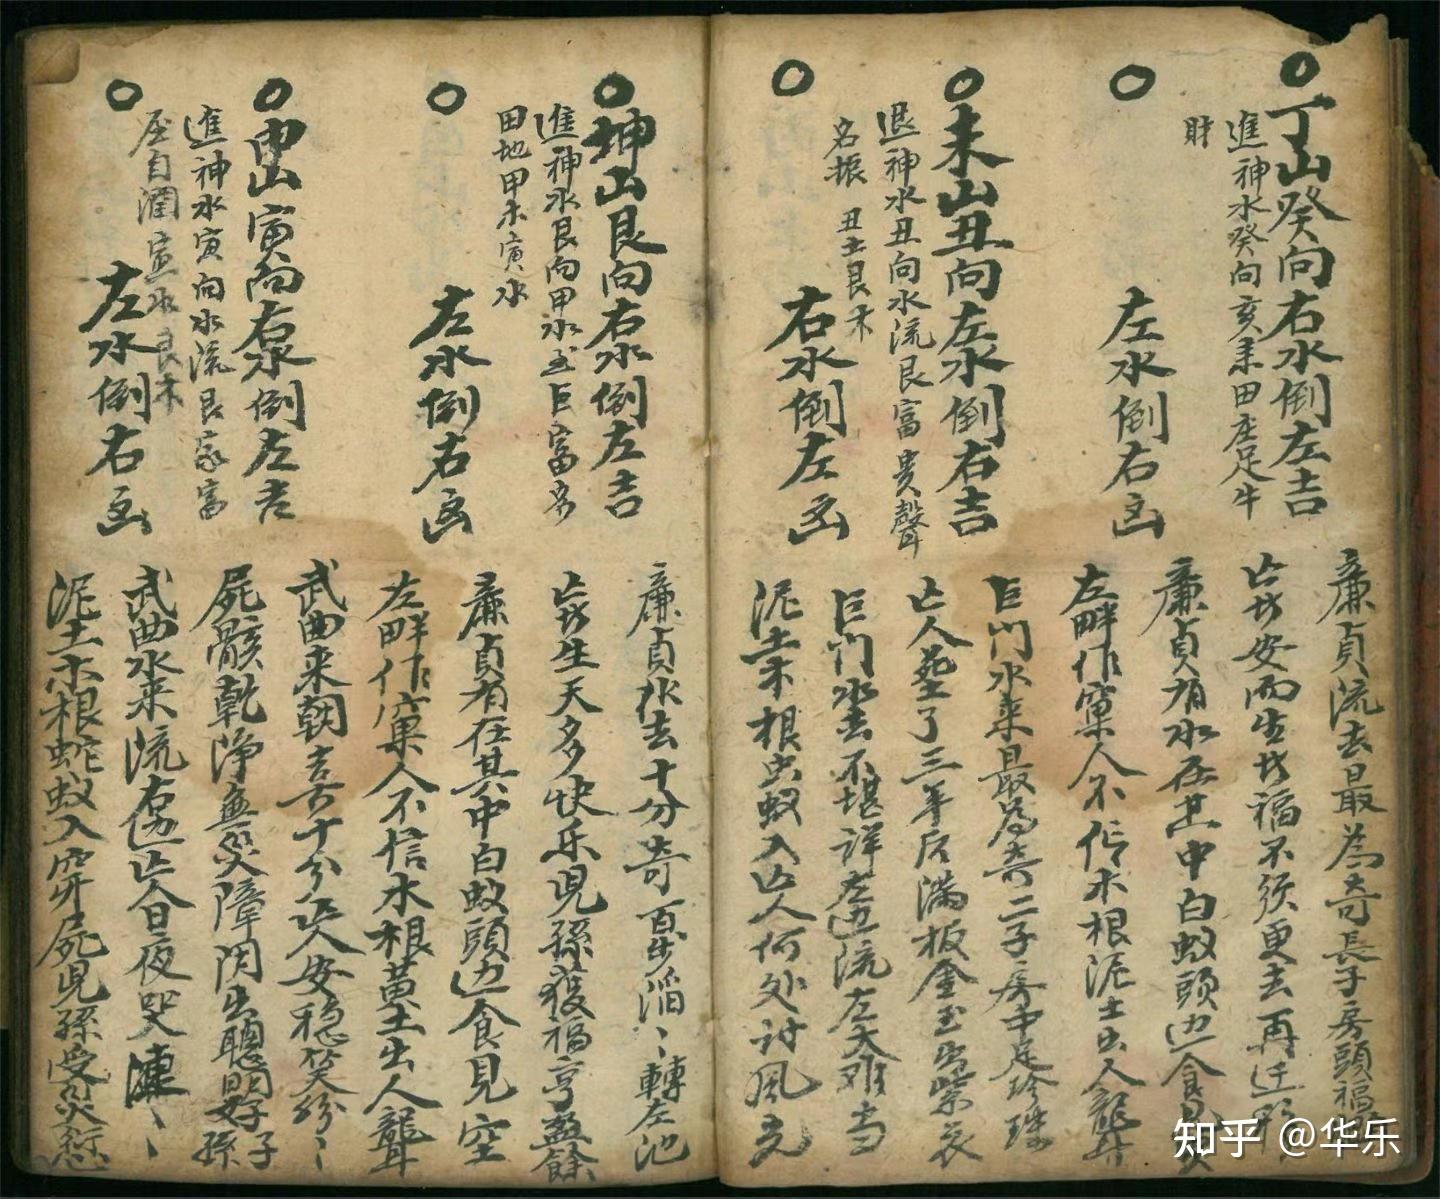 丁山癸向右水倒左吉
進神水癸向亥来田庄足牛
財
左水倒右凶
廉貞流去最為奇長子房頭福
亡安而生福不須更去再迁
廉貞有水在其中白蚁頭边食見
左畔作窠人不信木根泥土出人龍
未山丑向左水倒右吉
退神水丑向水流艮富貴聲
名振 丑土艮木
右水倒左凶
巨門水来最為奇二子房中足珍珠
亡人葬了三年后滿板金玉出紫衣
巨門水去不堪詳左边流左大难当
泥土木根虫蚁入亡人何处讨風光
坤山艮向右水倒左吉
進神水艮向甲水至巨富多
田地甲木寅水
左水倒右凶
廉貞水去十分奇百步滔丶轉左池
亡生天多快乐児孫獲福亨盈餘
廉貞有在其中白蚁頭边食見空
左畔作窠人不信木根黄土出人聾
申山寅向右水倒左吉
進神水寅向水流艮家富
屋自潤 寅水艮木
左水倒右凶
武曲来朝吉十分亡人安稳笑紛丶
屍骸乾淨無災障閃出聰明好子孫
武曲水来流右傍亡人日夜哭漣丶
泥土木根蛇蚁入穿屍児孫受災愆
知乎 @华乐